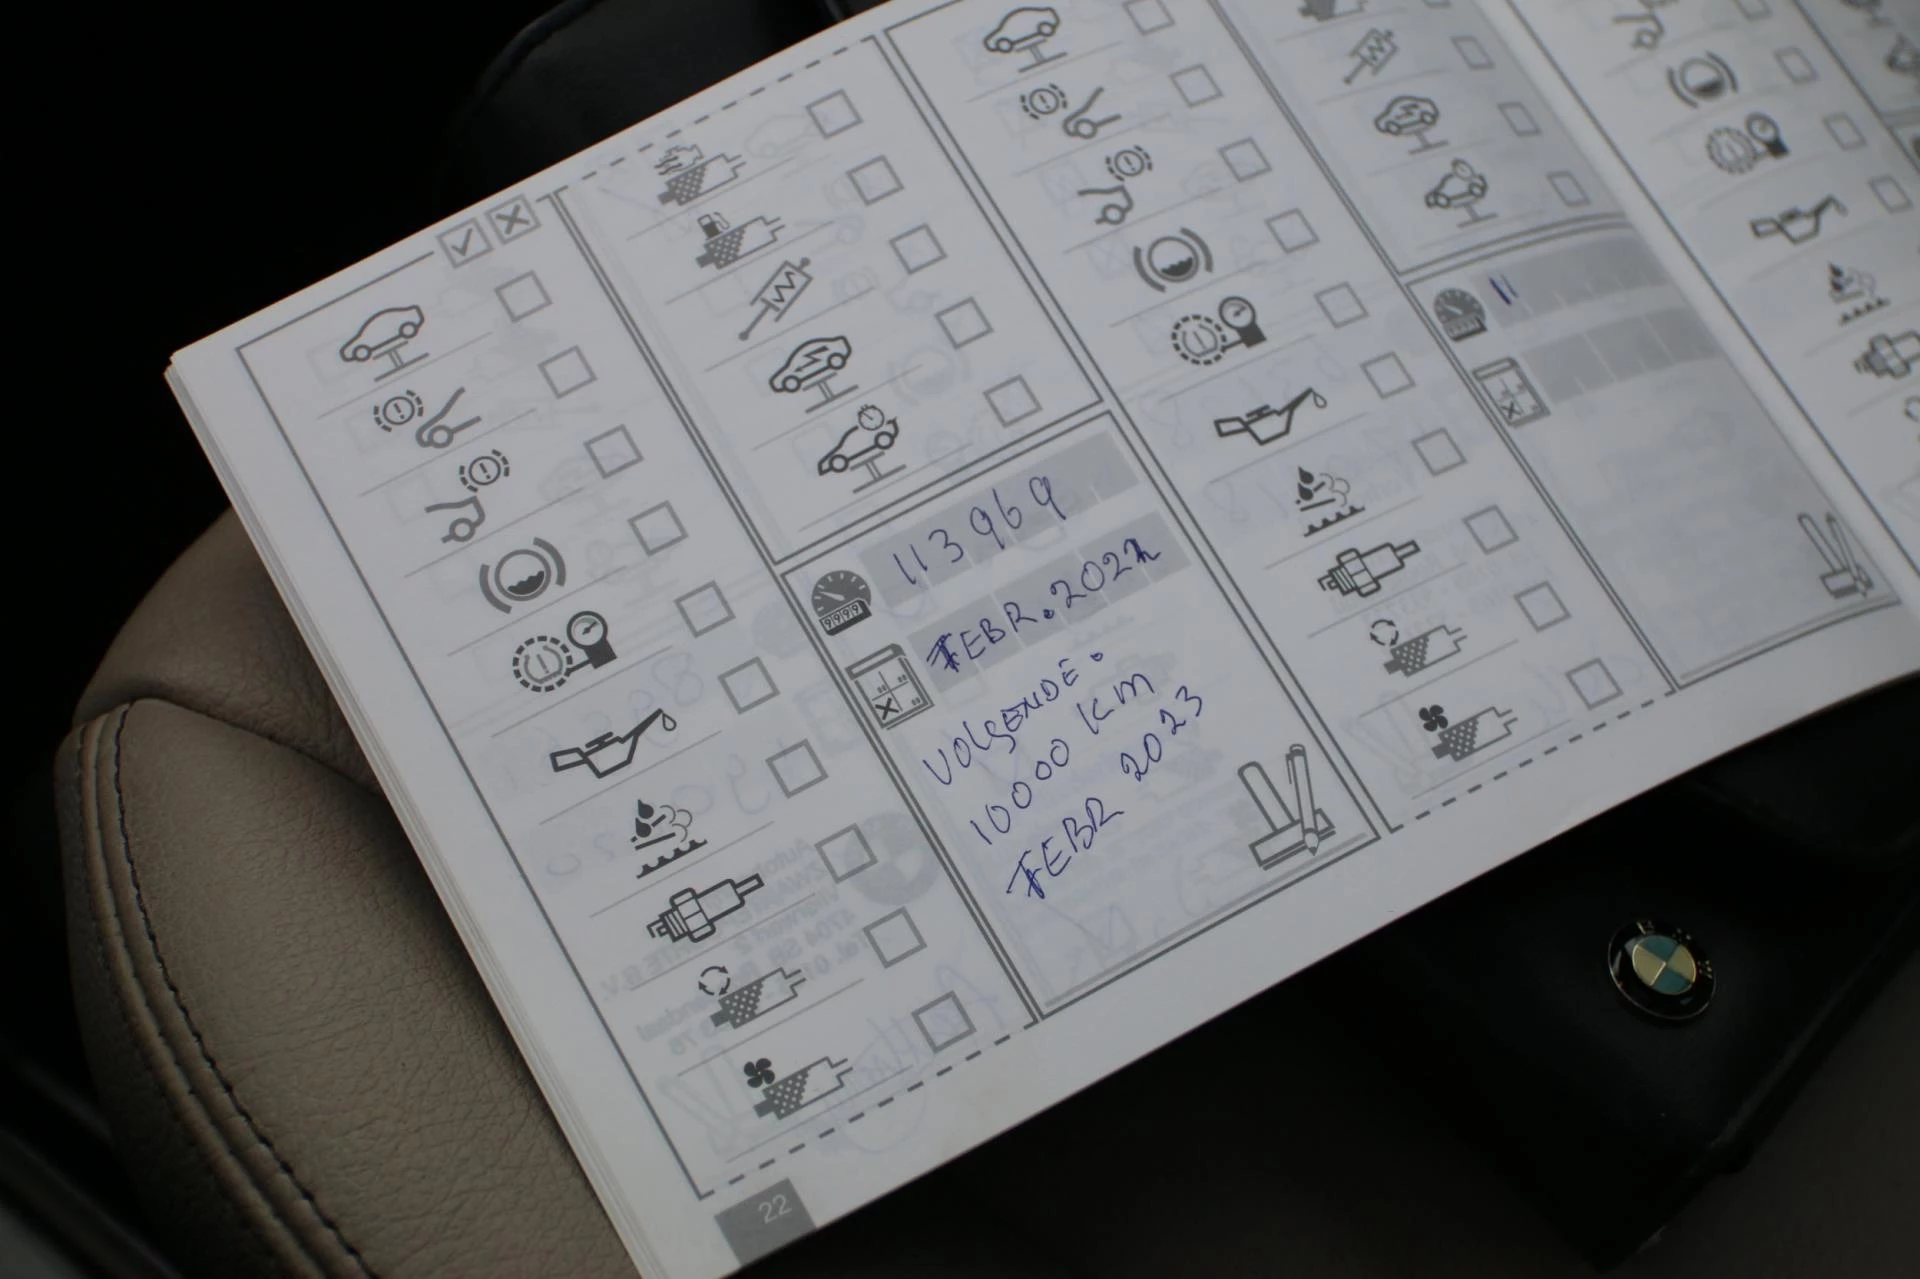 113969
FEBR. 2022
VOLGENDE.
10000 KM
FEBR 2023
11
22